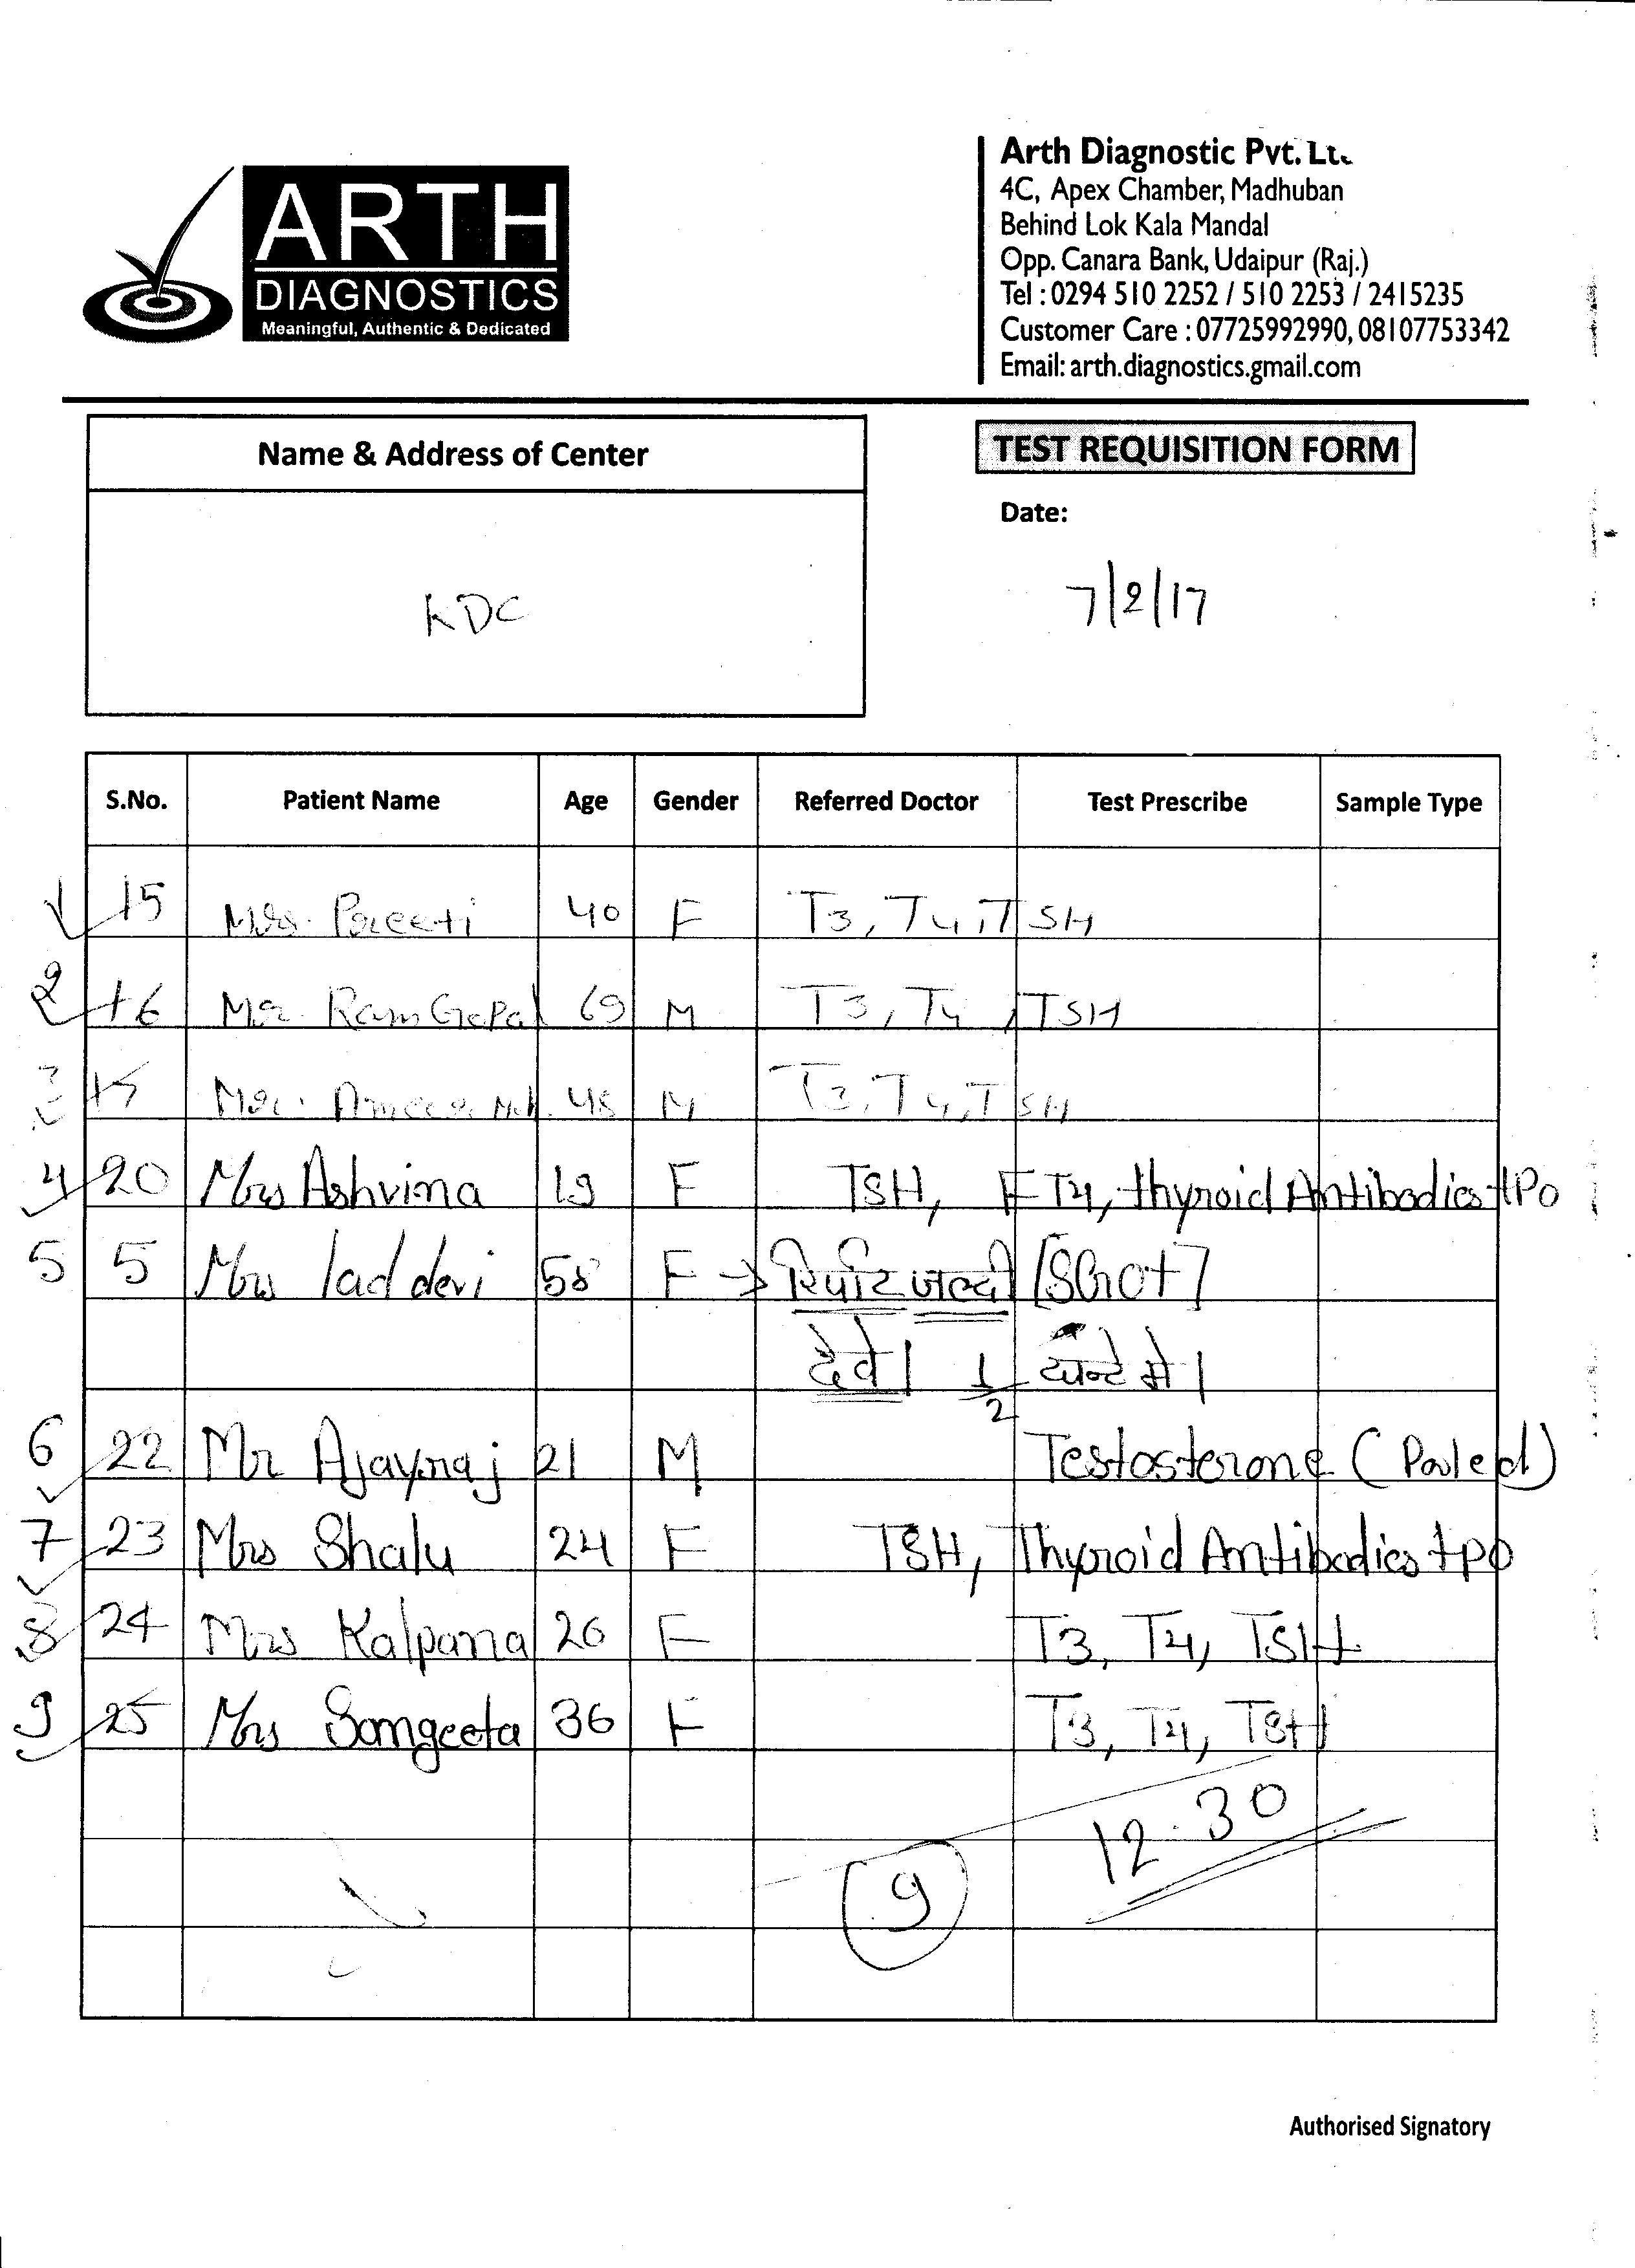 ARTH
DIAGNOSTICS
Meaningful, Authentic & Dedicated
Arth Diagnostic Pvt. Lt
4C, Apex Chamber, Madhuban
Behind Lok Kala Mandal
Opp. Canara Bank, Udaipur (Raj.)
Tel : 0294 510 2252 / 510 2253 / 2415235
Customer Care : 07725992990, 08107753342
Email: arth.diagnostics.gmail.com
Name & Address of Center
TEST REQUISITION FORM
Date:
KDC
7/2/17
S.No. Patient Name Age Gender Referred Doctor Test Prescribe Sample Type
1 15 Mrs. Preeti 40 F T3, T4, TSH
2 16 Mr. Ram Gopal 69 M T3, T4, TSH
3 Mr. 48 M T3, T4, TSH
4 20 Mrs Ashvina 19 F TSH, FT4, thyroid Antibodies tPO
5 5 Mrs lad devi 58 F → रिपोर्ट जल्दी [SGOT]
देवे। 1/2 घन्टे मे।
6 22 Mr Ajayraj 21 M Testosterone (Pooled)
7 23 Mrs Shalu 24 F TSH, Thyroid Antibodies tpo
8 24 Mrs Kalpana 26 F T3, T4, TSH
9 25 Mrs Sangeeta 36 F T3, T4, TSH
12.30
9
Authorised Signatory